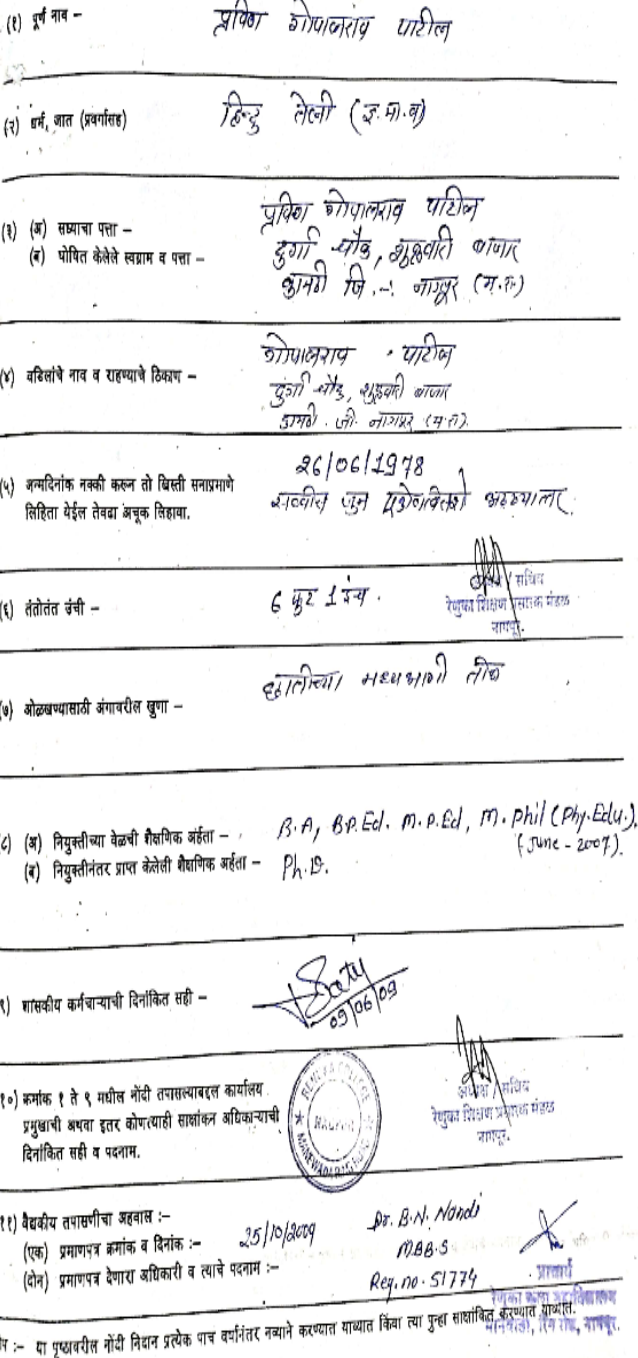 (१) पूर्ण नाव – प्रविण गोपालराव पाटील
(२) धर्म, जात (प्रवर्गासह) हिन्दु तेली (इ.मा.व)
(३) (अ) सध्याचा पत्ता – प्रविण गोपालराव पाटील
(ब) घोषित केलेले स्वग्राम व पत्ता – दुर्गा चौक, शुक्रवारी बाजार
कामठी जि. -: नागपूर (म.रा)
(४) वडिलांचे नाव व राहण्याचे ठिकाण – गोपालराव पाटील
दुर्गा चौक, शुक्रवारी बाजार
कामठी. जी. नागपूर (म.रा).
(५) जन्मदिनांक नक्की करून तो खिस्ती सनाप्रमाणे 26/06/1978
लिहिता येईल तेवढा अचूक लिहावा. सव्वीस जुन एकोणविसशे अठ्ठयात्तर
(६) तंतोतंत उंची – 6 फुट 1 इंच.
सचिव
रेणुका शिक्षण प्रसारक मंडळ
नागपूर.
(७) ओळखण्यासाठी अंगावरील खुणा – छातीच्या मध्यभागी तीळ
८) (अ) नियुक्तीच्या वेळची शैक्षणिक अर्हता – B.A, B.P.Ed. M.P.Ed, M.Phil (Phy.Edu.).
(June - 2007).
(ब) नियुक्तीनंतर प्राप्त केलेली शैक्षणिक अर्हता – Ph.D.
९) शासकीय कर्मचाऱ्याची दिनांकित सही –
09/06/09
१०) क्रमांक १ ते ९ मधील नोंदी तपासल्याबद्दल कार्यालय
प्रमुखाची अथवा इतर कोणत्याही साक्षांकन अधिकाऱ्याची
दिनांकित सही व पदनाम.
RENUKA COLLEGE
NAGPUR
अध्यक्ष / सचिव
रेणुका शिक्षण प्रसारक मंडळ
नागपूर.
११) वैद्यकीय तपासणीचा अहवाल :–
(एक) प्रमाणपत्र क्रमांक व दिनांक :– 25/10/2009
(दोन) प्रमाणपत्र देणारा अधिकारी व त्याचे पदनाम :–
Dr. B.N. Nandi
M.B.B.S
Reg.no. 51774
प्राचार्य
रेणुका कला महाविद्यालय
रिंग रोड, नागपूर.
:– या पृष्ठावरील नोंदी निदान प्रत्येक पाच वर्षानंतर नव्याने करण्यात याव्यात किंवा त्या पुन्हा साक्षांकित करण्यात याव्यात.